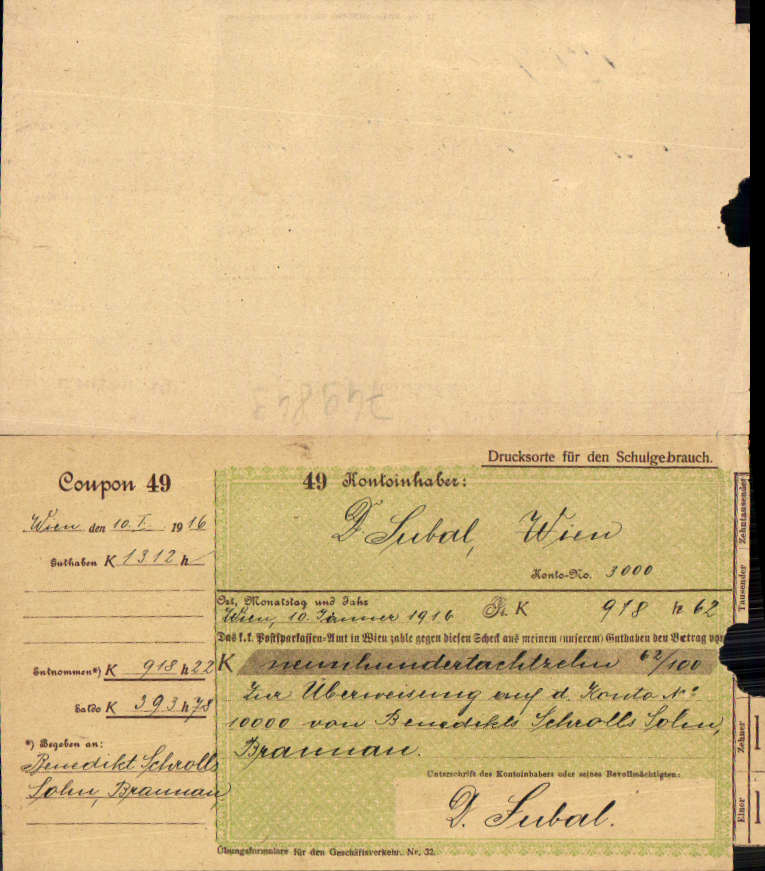 749843
Drucksorte für den Schulgebrauch.
Coupon 49
Wien den 10. I. 1916
Guthaben K 1312 h —
Entnommen*) K 918 h 22
Saldo K 393 h 78
*) Begeben an:
Benedikt Schrolls
Sohn, Braunau
49 Kontoinhaber:
D. Subal, Wien
Konto-No. 3000
Ort, Monatstag und Jahr
Wien, 10. Jänner 1916 K 918 h 62
Das k.k. Postsparkassen-Amt in Wien zahle gegen diesen Scheck aus meinem (unserem) Guthaben den Betrag von
K neunhundertachtzehn 62/100
Zur Überweisung auf d. Konto No
10000 von Benedikts Schrolls Sohn,
Braunau.
Unterschrift des Kontoinhabers oder seines Bevollmächtigten:
D. Subal.
Übungsformulare für den Geschäftsverkehr. Nr. 32.
Zehntausender
Tausender
Zehner
Einer